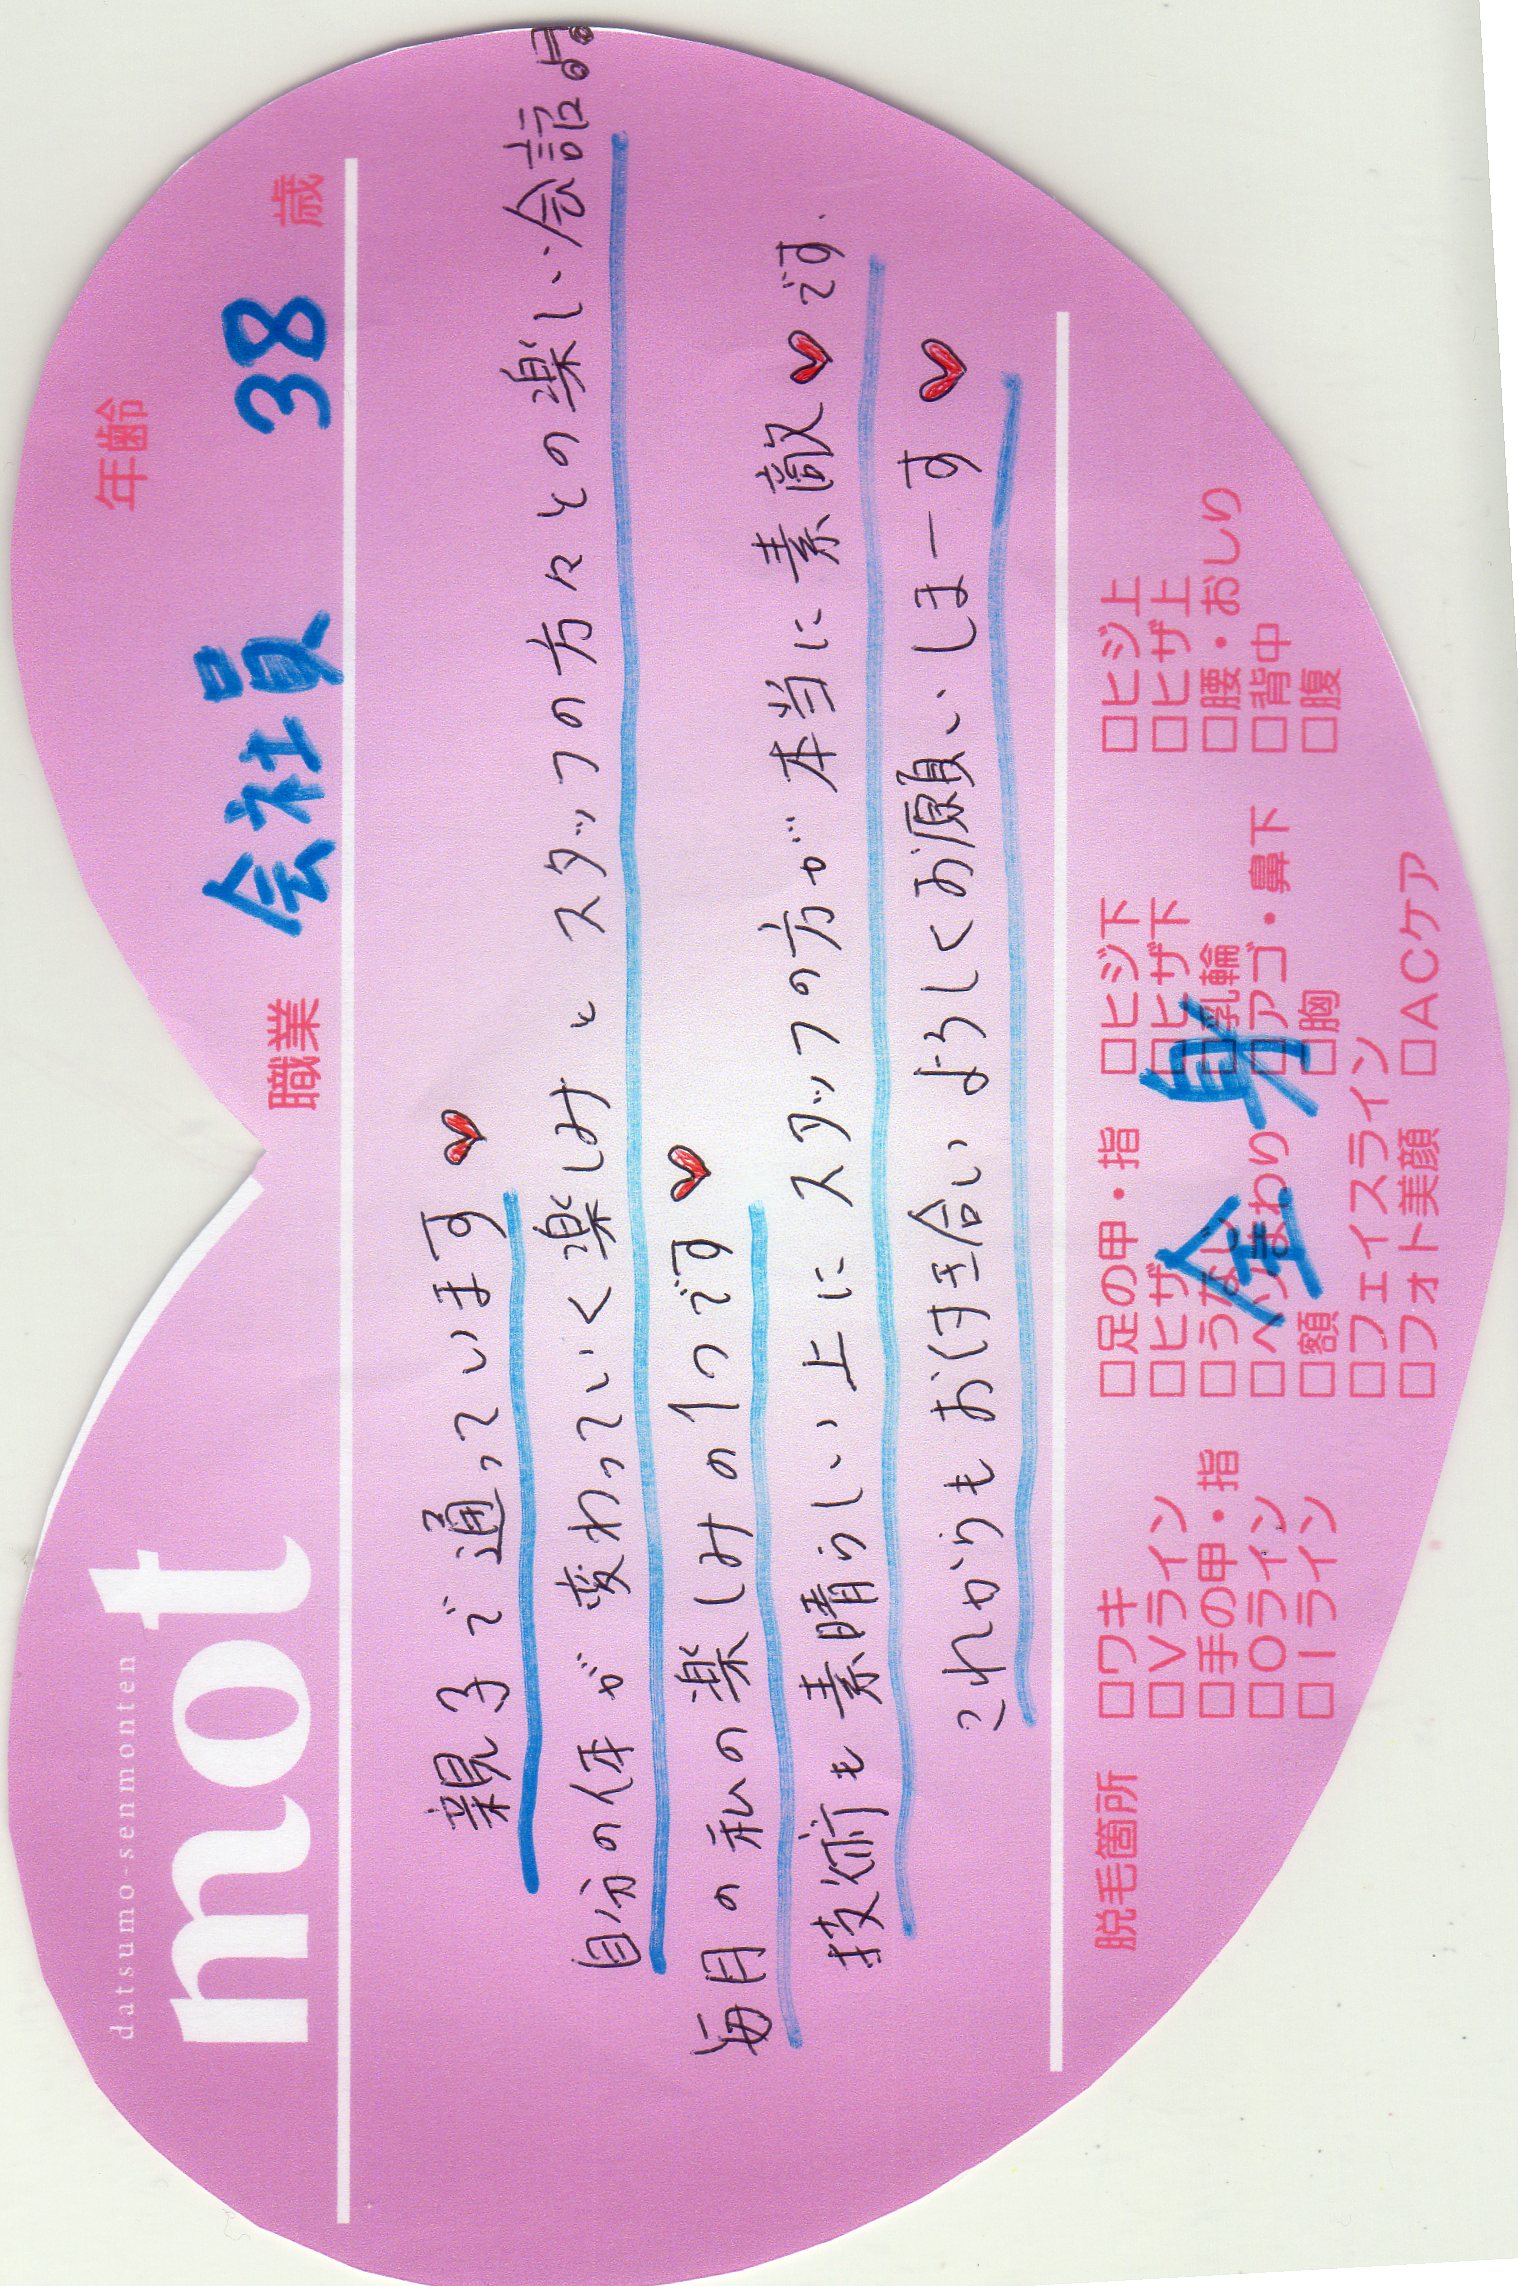 datsumo-senmonten
mot
年齢
職業 会社員 38 歳
親子で通っています
自分の体が変わっていく楽しみと スタッフの方々との楽しい会話が
毎月の私の楽しみの1つです
技術も素晴らしい上に スタッフの方が本当に素敵です.
これからもお付き合いよろしくお願いしまーす
脱毛箇所 □ワキ □足の甲・指 □ヒジ下 □ヒジ上
□Vライン □ヒザ □ヒザ下 □ヒザ上
□手の甲・指 □うなじ □乳輪 □腰・おしり
□Oライン □ヘソまわり □アゴ・鼻下 □背中
□Iライン □額 □胸 □腹
□フェイスライン
□フォト美顔 □ACケア
全身